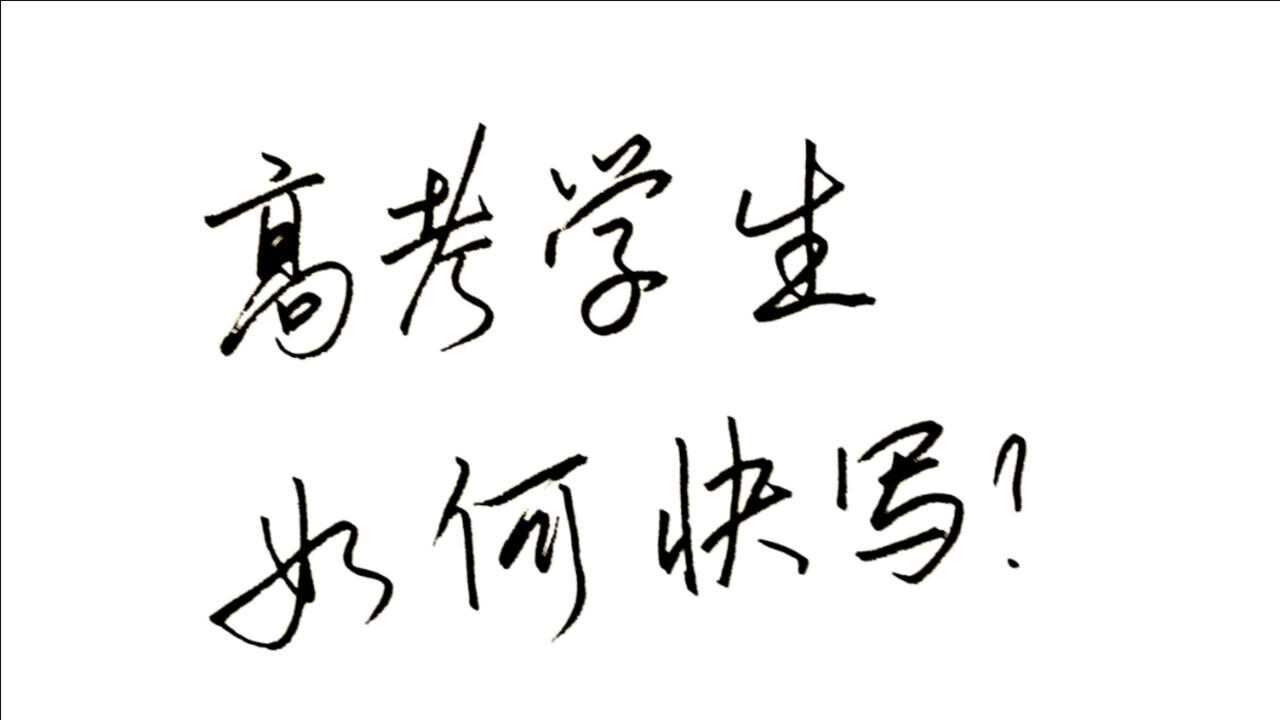 高考学生
如何快写?